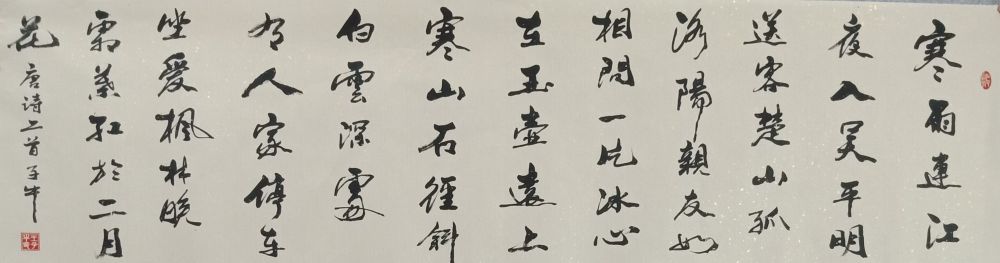 寒雨連江
夜入吴平明
送客楚山孤
洛陽親友如
相問一片冰心
在玉壺遠上
寒山石徑斜
白雲深處
有人家停车
坐愛楓林晚
霜葉红於二月
花
唐诗二首子牛